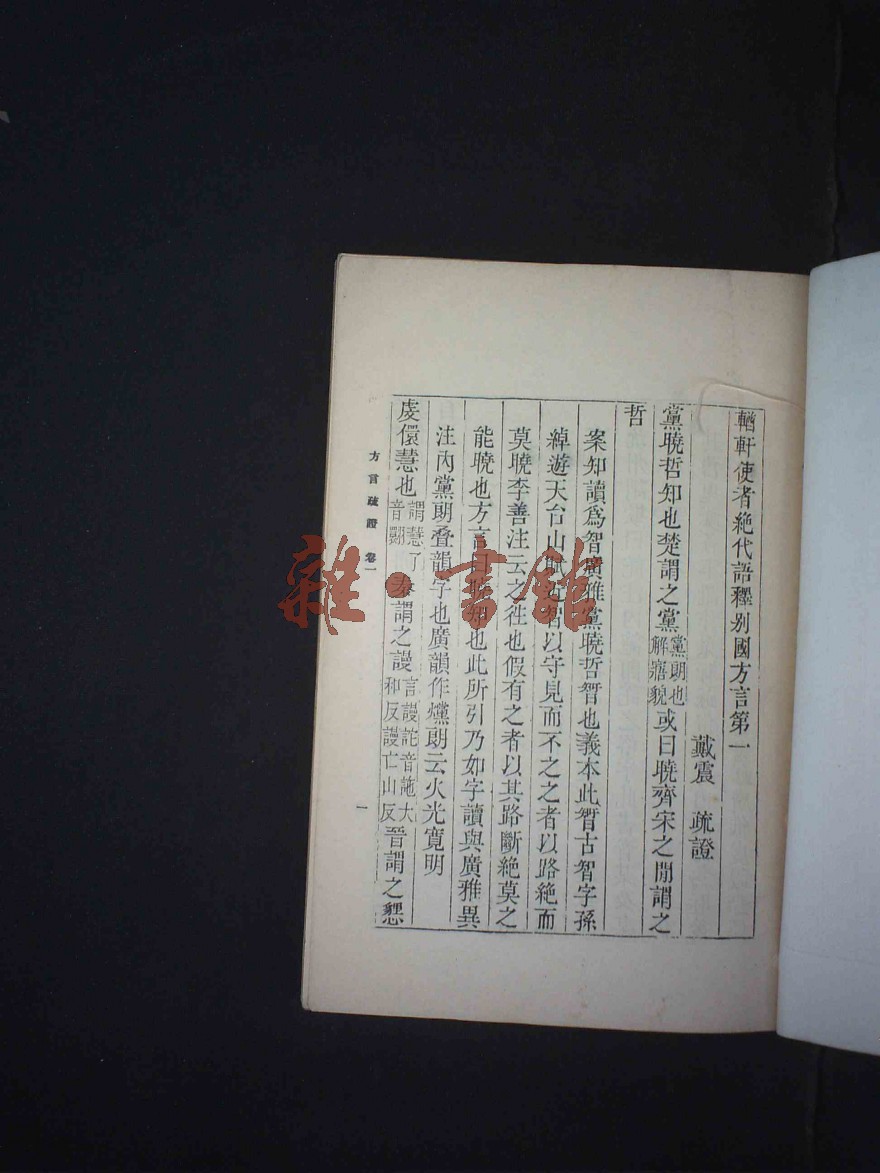 輶軒使者絶代語釋别國方言第一
戴震 疏證
黨曉哲知也楚謂之黨黨朗也解寤貌或曰曉齊宋之閒謂之
哲
案知讀爲智廣雅黨曉哲㬱也義本此㬱古智字孫
綽遊天台山賦近智以守見而不之之者以路絶而
莫曉李善注云之往也假有之者以其路斷絶莫之
能曉也方言曰曉知也此所引乃如字讀與廣雅異
注內黨朗疊韻字也廣韻作爣朗云火光寬明
虔儇慧也謂慧了音翾秦謂之謾言謾訑音訑大和反謾亡山反晉謂之㦟
方言疏證 卷一
一
雜·書館